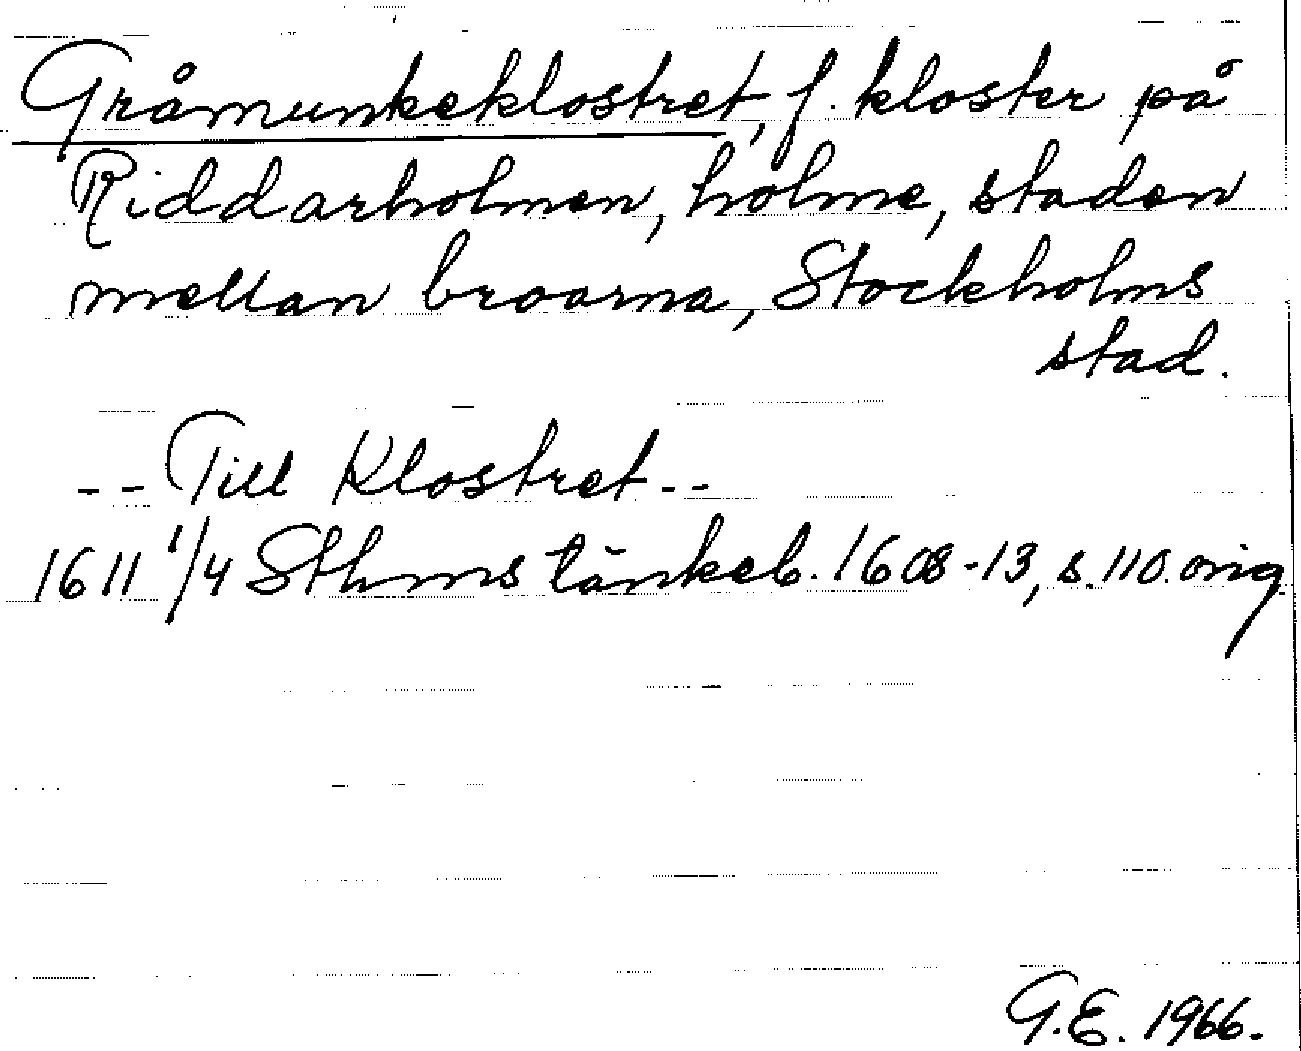 Gråmunkeklostret, f. kloster på
Riddarholmen, holme, staden
mellan broarna, Stockholms
stad.
-- Till Klostret --
1611 1/4 Sthms tänkeb. 1608-13, s. 110. orig
G.E. 1966.